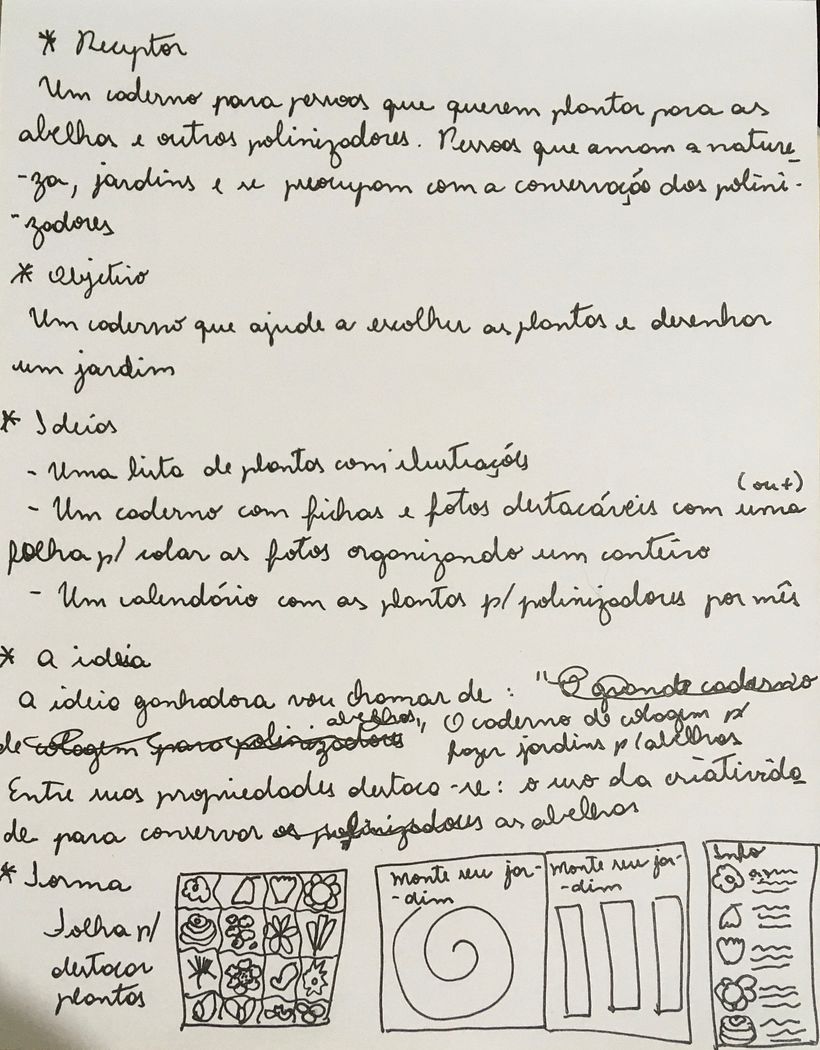 * Receptor
Um caderno para pessoas que querem plantar para as
abelhas e outros polinizadores. Pessoas que amam a nature-
-za, jardins e se preocupam com a conservação dos polini-
-zadores
* Objetivo
Um caderno que ajude a escolher as plantas e desenhar
um jardim
* Ideias
- Uma lista de plantas com ilustrações
(ou +)
- Um caderno com fichas e fotos destacáveis com uma
folha p/ colar as fotos organizando um canteiro
- Um calendário com as plantas p/ polinizadores por mês
* A ideia
A ideia ganhadora vou chamar de: "O grande caderno
de colagem para polinizadores abelhas" O caderno de colagem p/
fazer jardins p/ abelhas
Entre suas propriedades destaca-se: o uso da criativida-
de para conservar os polinizadores as abelhas
* Forma
Folha p/
destacar
plantas
Monte seu jar-
-dim
Monte seu jar-
-dim
Info